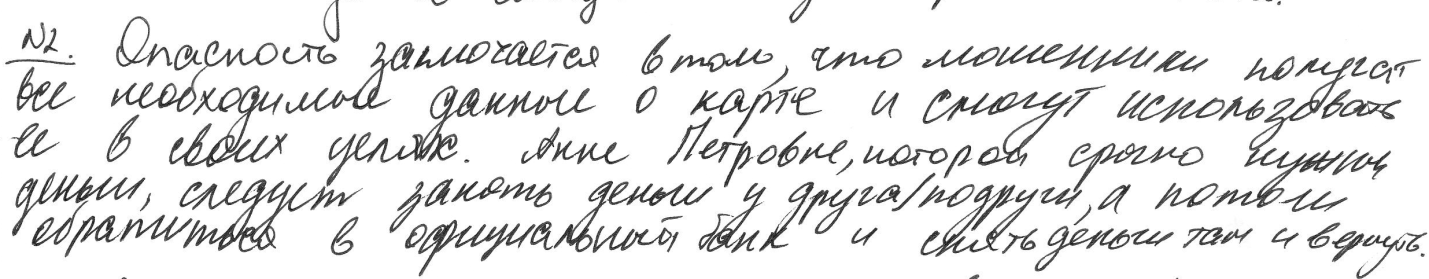 №2. Опасность заключается в том, что мошенники получат
все необходимые данные о карте и смогут использовать
ее в своих целях. Анне Петровне, которой срочно нужны
деньги, следует занять деньги у друга/подруги, а потом
обратиться в официальный банк и снять деньги там и вернуть.